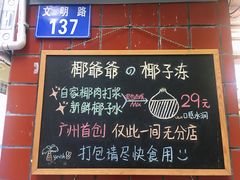 文明路
137
椰爷爷の椰子冻
☆自家椰肉打浆
☆新鲜椰子水
29元
广州首创 仅此一间无分店
打包请尽快食用